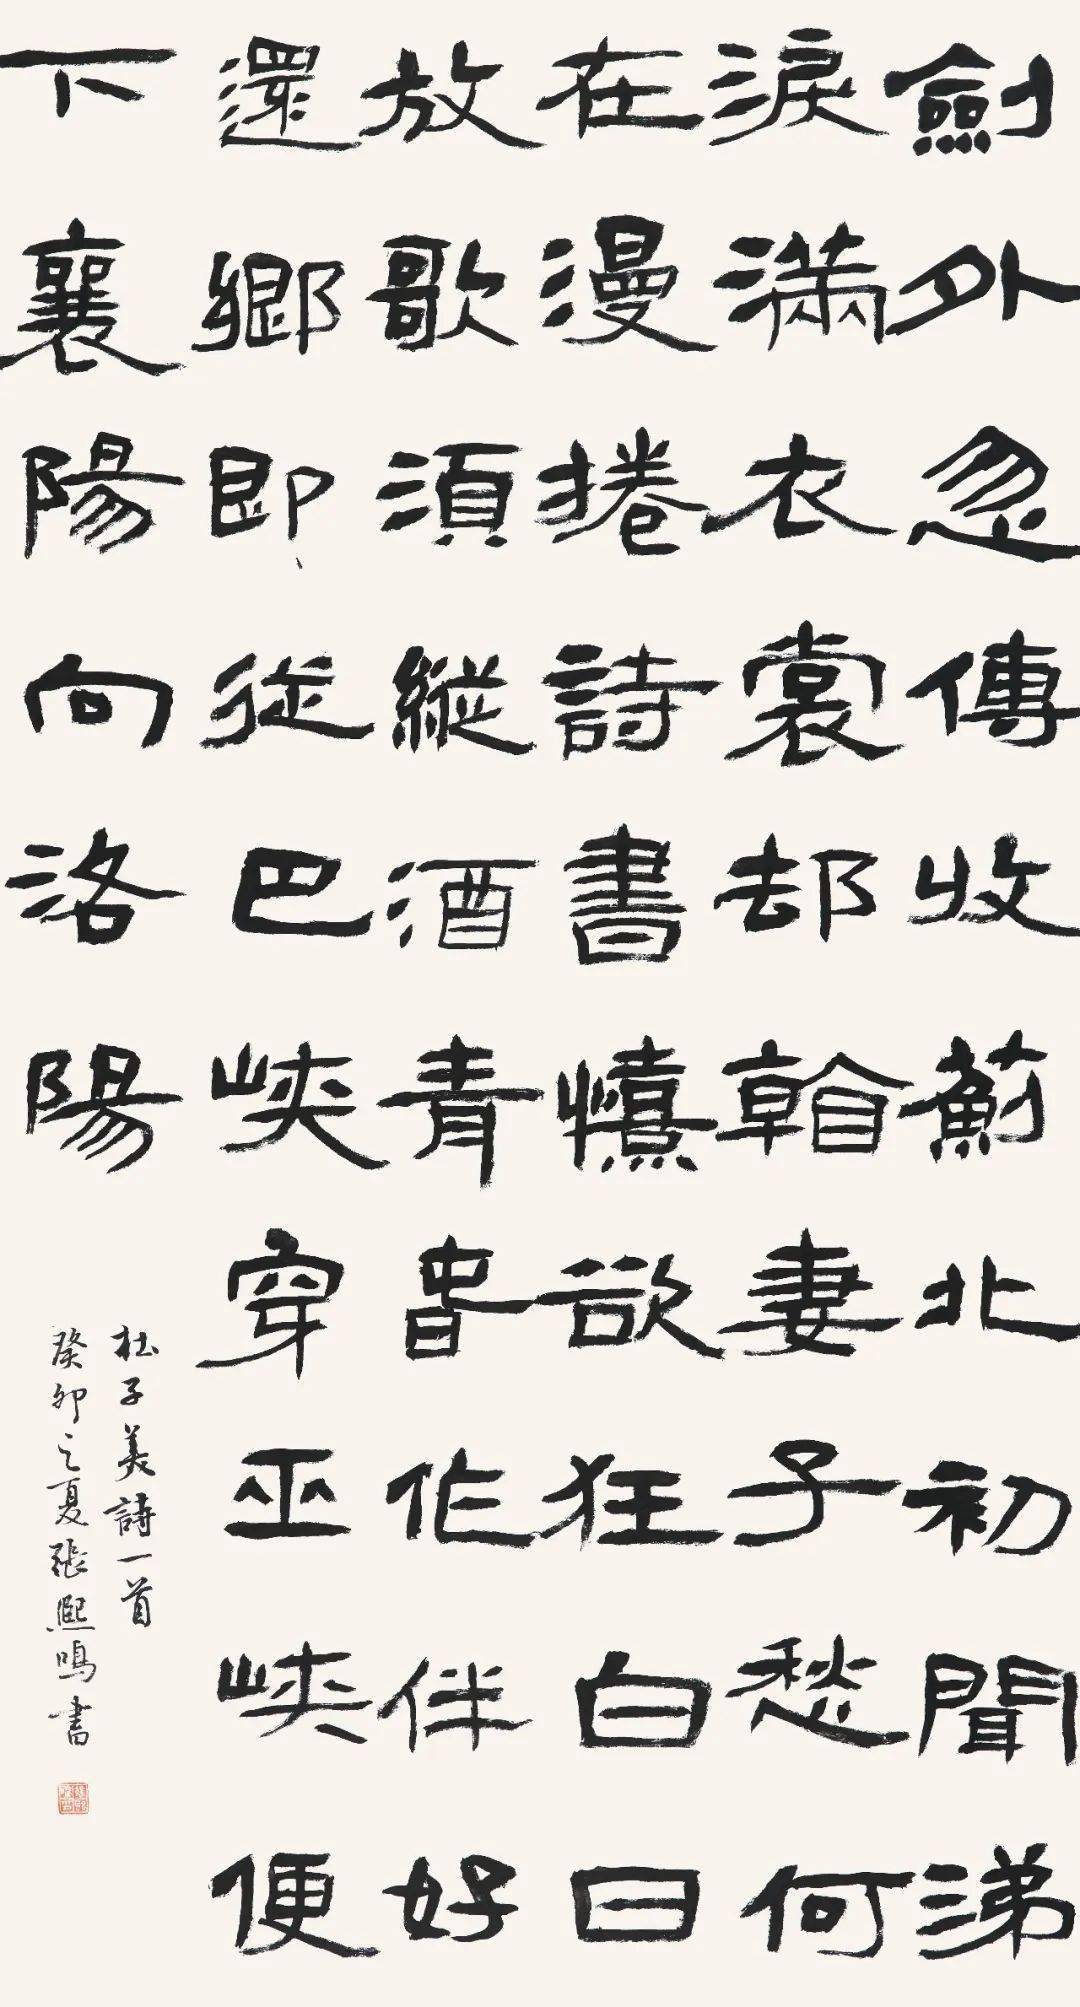 劍外忽傳收薊北初聞涕
淚滿衣裳却𠦝看妻子愁何
在漫捲詩書憘欲狂白日
放歌須縱酒青春作伴好
還鄉即從巴峽穿巫峽便
下襄陽向洛陽
杜子美詩一首
癸卯之夏張熙鳴書